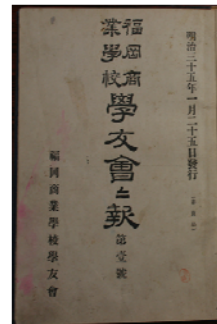 明治三十五年一月二十五日發行
福岡商
業學校
學友會々報
第壹號
福岡商業學校學友會